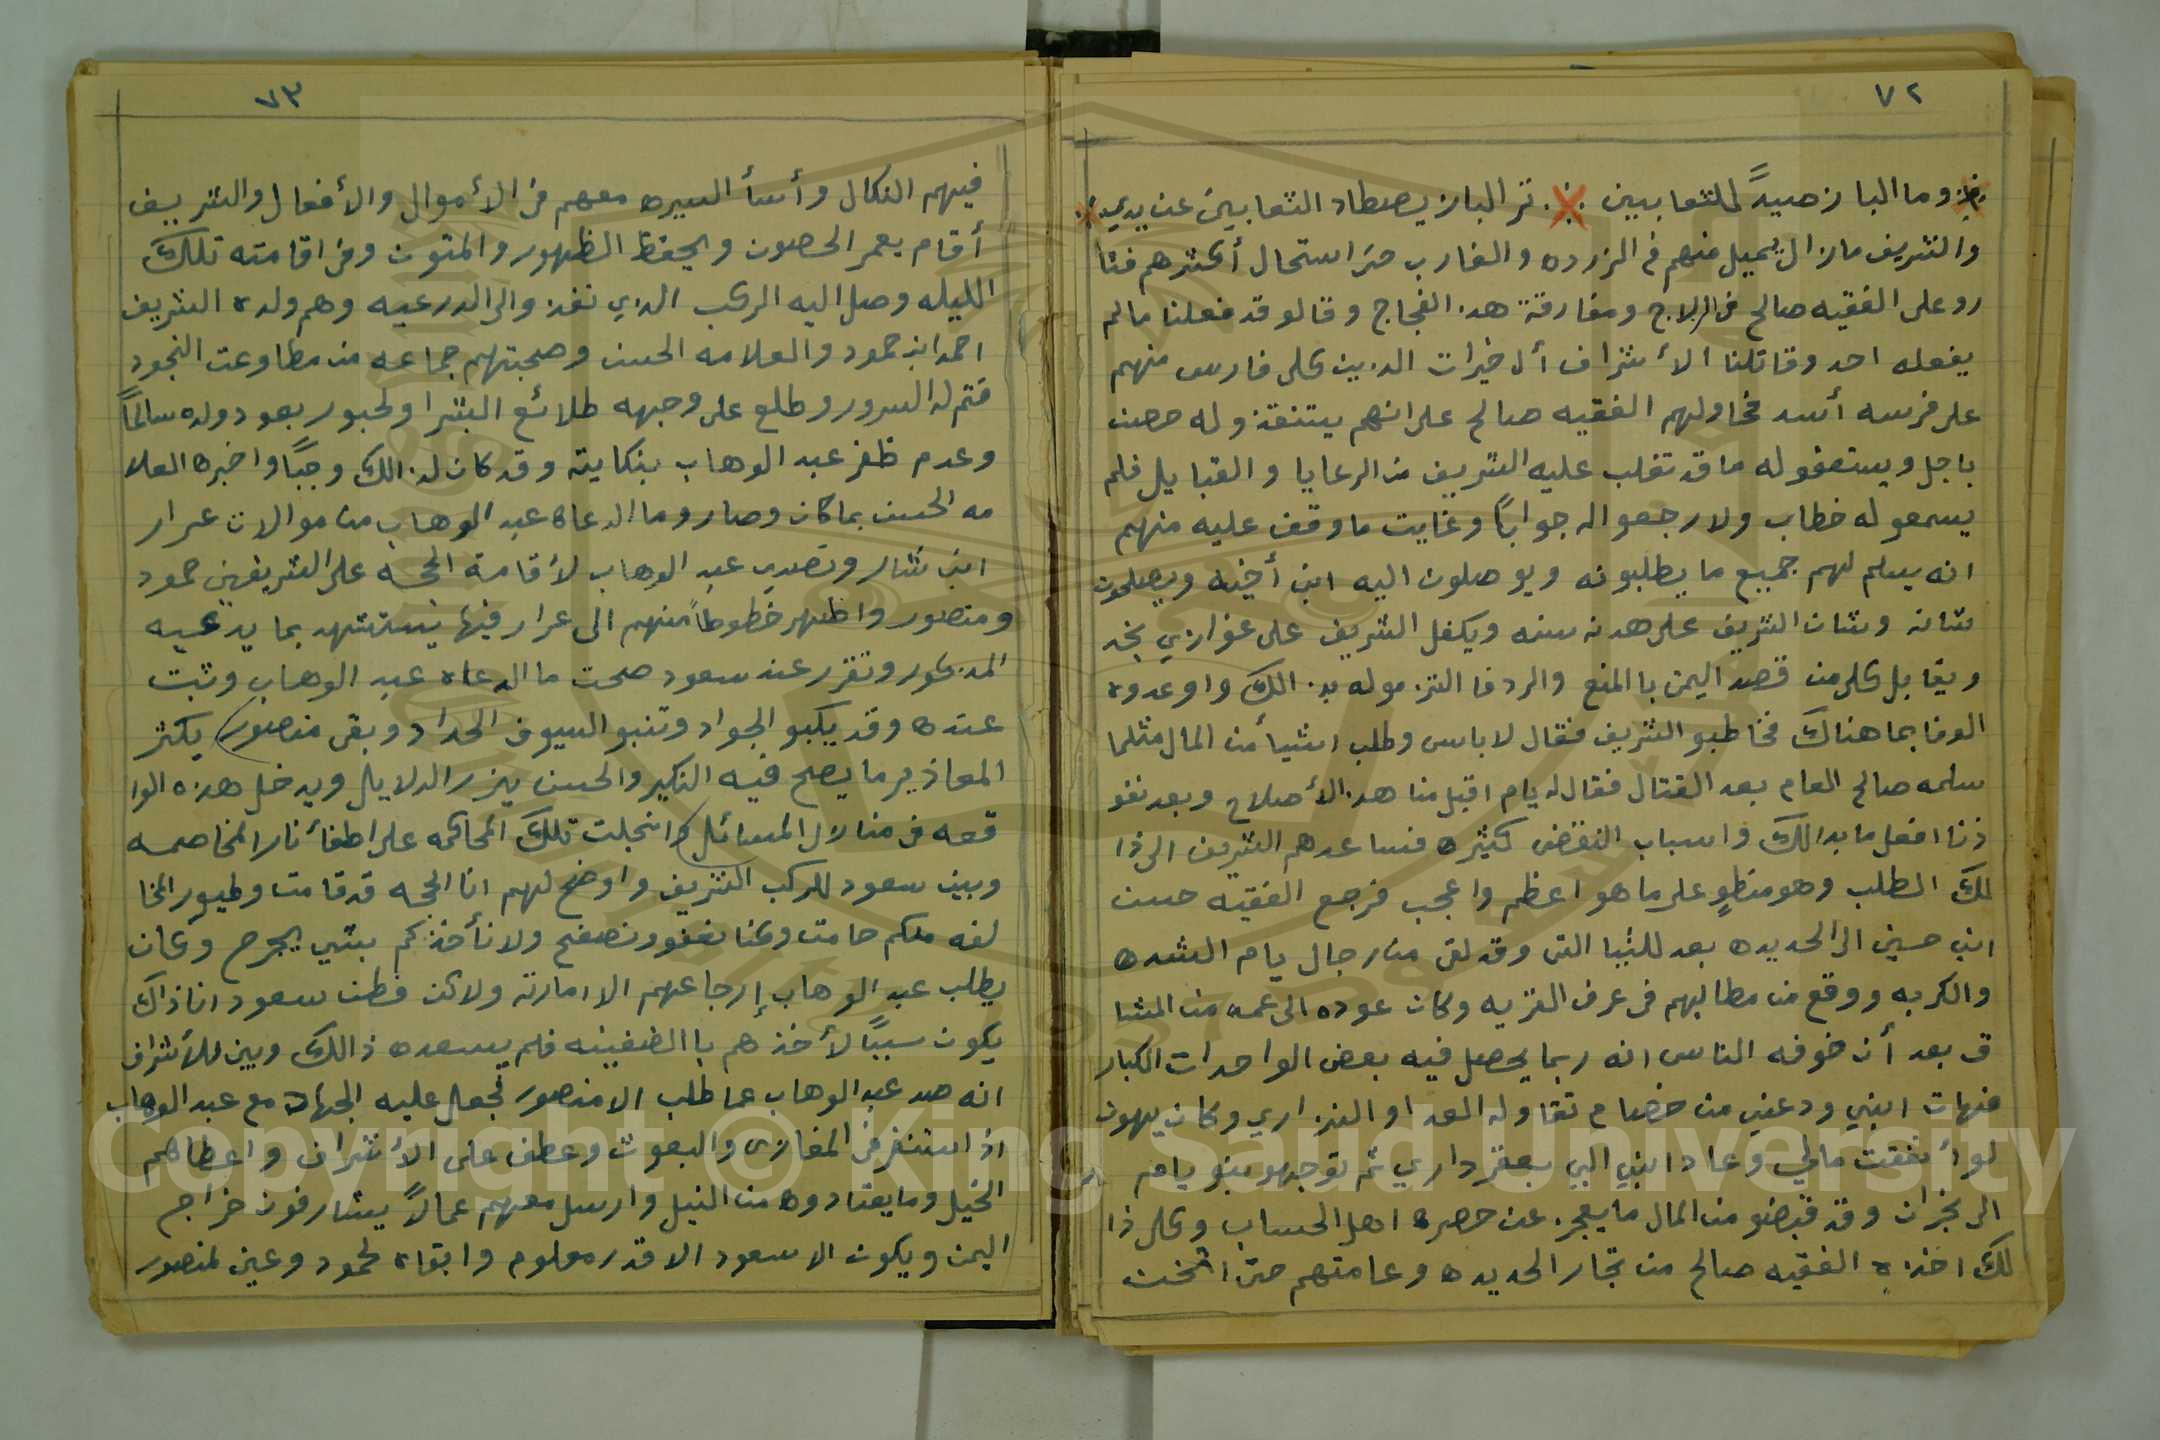 ٧٢
وما الباز صيدً للثعابين . تر الباز يصطاد الثعابين عن يدي
والشريف مازال يميل منهم في الزرده والغارب حتى استحال أكثرهم فثا
رو على الفقيه صالح في الزلاج ومفارقة هذ. الفجاج وقالو قد فعلنا مالم
يفعله احد وقاتلنا الأشراف أل خيرات الذين كل فارس منهم
على فرسه أسد فحاولهم الفقيه صالح على انهم يستنقذو له حصن
باجل ويستعفوله ما قد تغلب عليه الشريف من الرعايا والقبايل فلم
يسمعو له خطاب ولا رجعوا له جواباً وغايت ما وقف عليه منهم
انه يسلم لهم جميع ما يطلبونه ويوصلون اليه ابن أخيه ويصلحون
شانه وشان الشريف على هدنه سنه ويكفل الشريف على غوازي نجد
ويقابل كل من قصد اليمن باالمنع والردفا التزموله بذ. الك واوعدوه
الوفا بما هناك فخاطبو الشريف فقال لاباس وطلب اشيأ من المال مثلما
سلمه صالح العام بعد القتال فقال له يام اقبل منا هذ. الأصلاح وبعد نفو
ذنا افعل ما بدالك واسباب النقض كثيره فساعدهم الشريف الى ذا
لك الطلب وهو منطوٍ على ما هو اعظم واعجب فرجع الفقيه حسن
ابن حسين الى الحديده بعد للتيا التي وقد لقى من رجال يام الشده
والكربه ووقع من مطالبهم في عرف الفريه وكان عوده الى عمه من المشا
ق بعد أن خوفه الناس انه ربما يحصل فيه بعض الواحدات الكبار
فنهات ابني ودعني من خصام تقاوله العدا والنز. اري وكان يهون
لو أنفقت مالي وعاد ابني الي بعقر داري ثم توجهو بنو يام
الى نجران وقد قبضو من المال ما يعجز. عن حصره اهل الحساب وكل ذا
لك اخذ. ه الفقيه صالح من تجار الحديده وعامتهم حتى اثخنت
٧٣
فيهم النكال وأسأ السيره معهم في الأموال والأفعال والشريف
أقام يعمر الحصون ويحفظ الظهور والمتون وفي اقامته تلك
الليله وصل اليه الركب الذي نفذ والى الدرعيه وهم ولده الشريف
احمد ابن حمود والعلامه الحسن وصحبتهم جماعه من مطاوعت النجود
فتم له السرور وطلع على وجهه طلائع البشرا ولحبور بعود ولده سالماً
وعدم ظفر عبد الوهاب بنكايته وقد كان لذ. الك وجباً واخبره العلا
مه الحسن بما كان وصار وما ادعاه عبد الوهاب من موالات عرار
ابن شار وتصدي عبد الوهاب لأقامة الحجه على الشريفين حمود
ومنصور واظهر خطوطاً منهم الى عرار فيها يستشهد بما يدعيه
المذ. كور وتقرر عند سعود صحت ما ادعاه عبد الوهاب وثبت
عنده وقد يكبو الجواد وتنبو السيوف الحداد وبقى منصور يكثر
المعاذير ما يصح فيه النكير والحسن يزر الدلايل ويدخل هذه الوا
قعه في منازل المسائل وانجلت تلك المحاكمه على اطفأ نار المخاصمه
وبين سعود للركب الشريف واوضح لهم انا الحجه قد قامت وطيور المخا
لفه منكم حامت وكنا نعفو ونصفح ولا نأخذكم بشي يجرح وكان
يطلب عبد الوهاب إرجاعهم الا امارته ولاكن فطن سعود انا ذاك
يكون سبباً لأخذهم باالضغينه فلم يسعده ذالك وبين للأشراف
انه صد عبد الوهاب عما طلب الا منصور فجعل عليه الجهاد مع عبد الوهاب
اذا استنفر في المغازى والبعوث وعطف على الأشراف واعطاهم
الخيل وما يعتادوه من النيل وارسل معهم عمالاً يشارفون خراج
اليمن ويكون الا سعود الا قدر معلوم وابقاه لحمود وعين لمنصور
Copyright © King Saud University